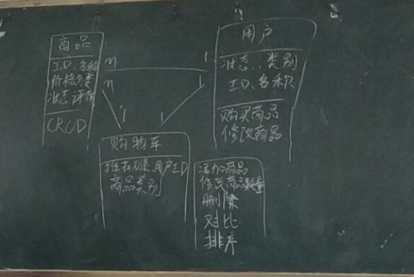 商品
ID、名称
价格分类
状态 详情
CRUD
m
1
n
1
1
1
用户
状态、类别
ID、名称
购买商品
修改商品
购物车
用户ID
商品类别
添加商品
修改商品数量
删除
对比
排序